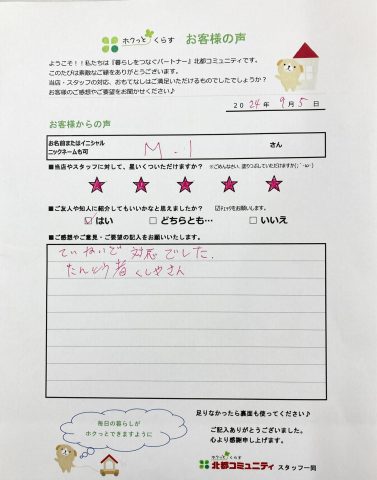 ホクっとくらす お客様の声
ようこそ！！私たちは『暮らしをつなぐパートナー』北都コミュニティです。
このたびは素敵なご縁をありがとうございます。
当店・スタッフの対応、おもてなしはご満足いただけるものでしたでしょうか？
お客様のご感想やご要望をお聞かせください♪
2024年 9月 5日
お客様からの声
お名前またはイニシャル
ニックネームも可
M.I さん
■当店やスタッフに対して、星いくついただけますか？ ※ごめんなさい、塗りつぶしていただけますか(;´･ω･)
■ご友人や知人に紹介してもいいかなと思えましたか？ ☑チェックをお願いします。
はい どちらとも… いいえ
■ご感想やご意見・ご要望の記入をお願いいたします。
ていねいで 対応でした.
たんとう者 くしやさん
足りなかったら裏面も使ってください♪
毎日の暮らしが
ホクっとできますように
ご記入ありがとうございました。
心より感謝申し上げます。
ホクっとくらす
北都コミュニティ スタッフ一同